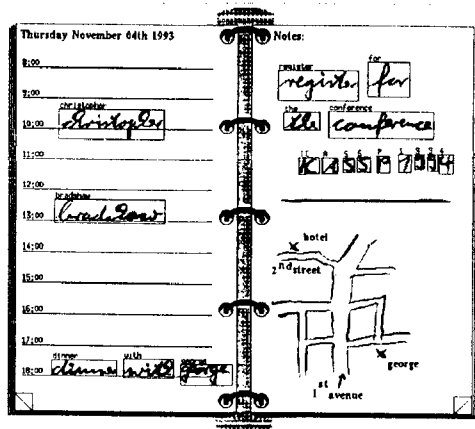 Thursday November 04th 1993
8:00
9:00
christopher
10:00 christopher
11:00
12:00
bradshaw
13:00 bradshaw
14:00
15:00
16:00
17:00
dinner with george
18:00 dinner with george
Notes:
register for
register for
the conference
the conference
I C A S S P 1 9 9 4
hotel
2nd street
george
1st avenue